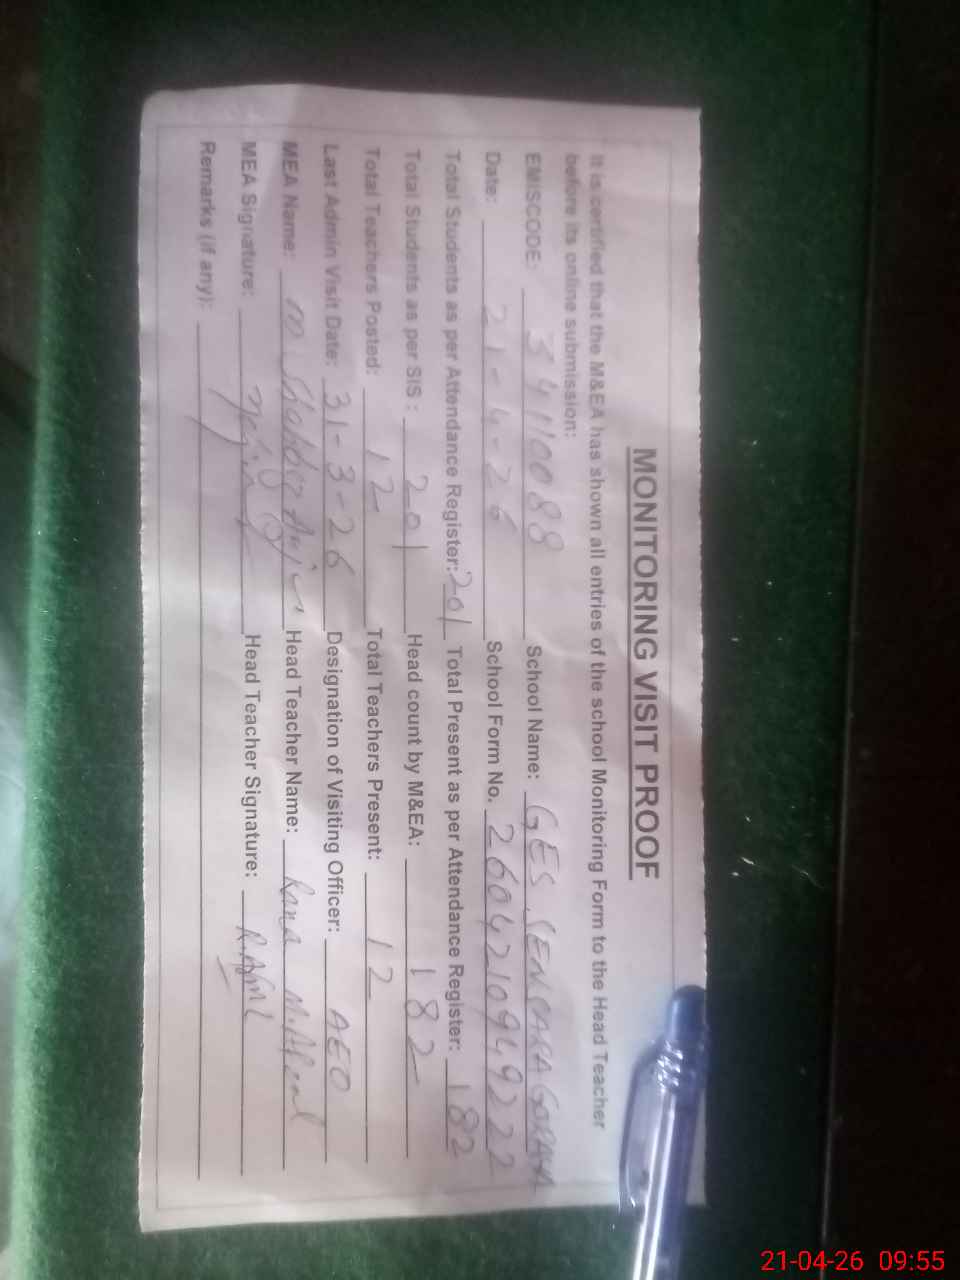 MONITORING VISIT PROOF
It is certified that the M&EA has shown all entries of the school Monitoring Form to the Head Teacher
before its online submission:
EMISCODE: 34110088 School Name: GES
Date: 21-4-26 School Form No. 2604210949222
Total Students as per Attendance Register: 201 Total Present as per Attendance Register: 182
Total Students as per SIS : 201 Head count by M&EA: 182
Total Teachers Posted: 12 Total Teachers Present: 12
Last Admin Visit Date: 31-3-26 Designation of Visiting Officer: AEO
MEA Name: M Head Teacher Name: Rana M.
MEA Signature: Head Teacher Signature:
Remarks (if any):
21-04-26 09:55